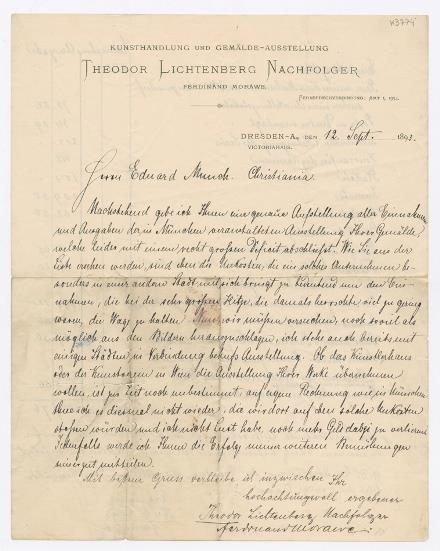 K3774
KUNSTHANDLUNG UND GEMÄLDE-AUSSTELLUNG
THEODOR LICHTENBERG NACHFOLGER
FERDINAND MORAWE.
FERNSPRECHVERBINDUNG: AMT I,
DRESDEN-A., DEN 12. Sept. 1893.
VICTORIAHAUS.
Herrn Eduard Munch. Christiania.
Nachstehend gebe ich Ihnen eine genaue Aufstellung aller Einnahmen
und Ausgaben der in München veranstalteten Ausstellung Ihrer Gemälde,
welche leider mit einem recht großen Deficit abschließt. Wie Sie aus der
Liste ersehen werden, sind eben die Unkosten, die ein solches Unternehmen be-
sonders in einer andern Stadt mit sich bringt, zu um den Ein-
nahmen, die bei der sehr großen Hitze, die damals herrschte viel zu gering
waren, die Wage zu halten. Nun wir müssen versuchen, noch soviel als
möglich aus den Bildern herauszuschlagen, ich stehe auch bereits mit
einigen Städten in Verbindung behufs Ausstellung. Ob das Künstlerhaus
oder der Kunstverein in Wien die Ausstellung Ihrer Werke übernehmen
wollen, ist zur Zeit noch unbestimmt, auf eigene Rechnung wie in München
thue ich es diesmal nicht wieder, da wir dort auf eben solche Unkosten
stoßen würden und ich nicht Lust habe, noch mehr Geld dabei zu verlieren.
Jedenfalls werde ich Ihnen die Erfolge meiner weiteren Bemühungen
mitteilen.
Mit bestem Gruss verbleibe ich inzwischen Ihr
hochachtungsvoll ergebener
Theodor Lichtenberg Nachfolger
Ferdinand Morawe.